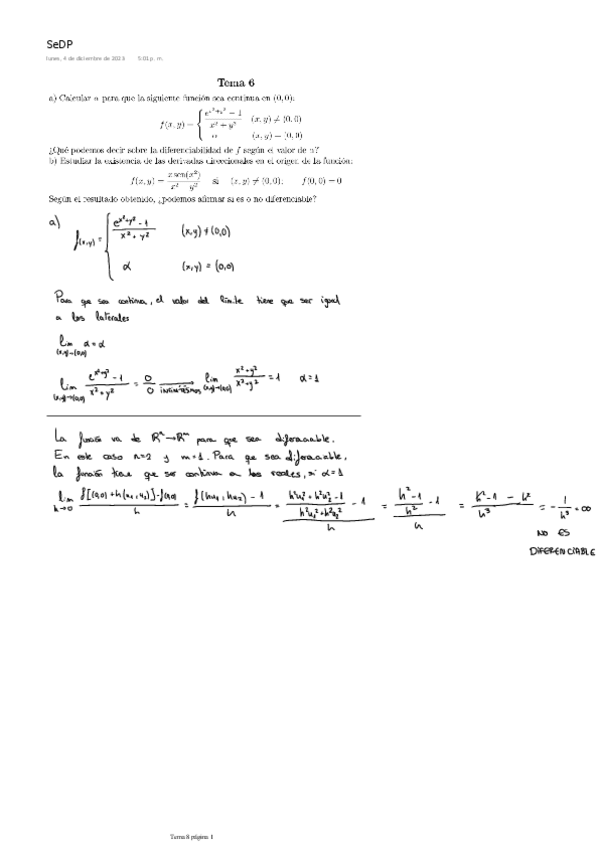 SeDP
lunes, 4 de diciembre de 2023 5:01 p. m.
Tema 6
a) Calcular α para que la siguiente función sea continua en (0, 0):
f(x, y) = { (e^(x²+y²) − 1)/(x² + y²) (x, y) ≠ (0, 0)
α (x, y) = (0, 0)
¿Qué podemos decir sobre la diferenciabilidad de f según el valor de α?
b) Estudiar la existencia de las derivadas direccionales en el origen de la función:
f(x, y) = x sen(x²)/(x² y²) si (x, y) ≠ (0, 0); f(0, 0) = 0
Según el resultado obtenido, ¿podemos afirmar si es o no diferenciable?
a) f(x,y) = { (e^(x²+y²) - 1)/(x² + y²) (x,y) ≠ (0,0)
α (x,y) = (0,0)
Para que sea continua, el valor del límite tiene que ser igual
a los laterales
lim (x,y)→(0,0) α = α
lim (x,y)→(0,0) (e^(x²+y²) - 1)/(x² + y²) = 0/0 → INFINITÉSIMOS lim (x,y)→(0,0) (x²+y²)/(x²+y²) = 1 α = 1
La función va de Rⁿ → Rᵐ para que sea diferenciable.
En este caso n=2 y m=1. Para que sea diferenciable,
la función tiene que ser continua en los reales, si α=1
lim h→0 (f[(0,0) + h(u₁,u₂)] - f(0,0))/h = (f(hu₁, hu₂) - 1)/h = ((h²u₁² + h²u₂² - 1)/(h²u₁² + h²u₂²) - 1)/h = ((h² - 1)/h² - 1)/h = (h² - 1 - h²)/h³ = - 1/h³ = ∞
NO ES
DIFERENCIABLE
Tema 8 página 1